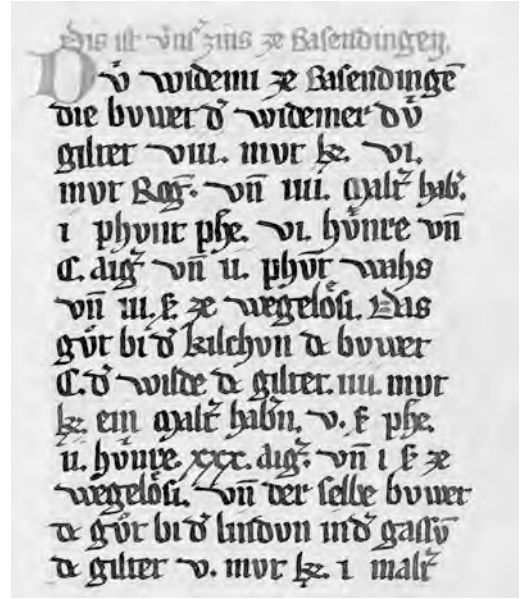 Dis ist vnsˀ zins ze Basendingen.
Dv̊ widemi ze Basendingē
die bvwet dˀ widemer dv̊
giltet viii. mvt kˀ. vi.
mvt Rogˀ. vn̄ iiii. Maltˀ habˀ.
i phvnt phe. vi. hv̊nre vn̄
C. aigˀ vn̄ ii. phv̄t wahs
vn̄ iii. ẜ ze wegelôsi. Das
gv̊t bi dˀ kilchvn de bvwet
C. dˀ wilde de giltet. iiii. mvt
kˀ. ein Maltˀ habn̄. v. ẜ phe.
ii. hv̊nre. xxx. aigˀ. vn̄ i ẜ ze
wegelôsi. vn̄ der selbe bvwet
de gv̊t bi dˀ lindvn indˀ gassv̄
de giltet v. mvt kˀ. i maltˀ